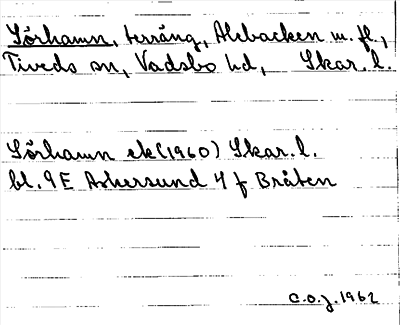 Sörhamn, terräng, Alsbacken m. fl.,
Tiveds sn, Vadsbo hd, Skar. l.
Sörhamn ek (1960) Skar. l.
bl. 9E Askersund 4 f Bråten
C.O.J. 1962